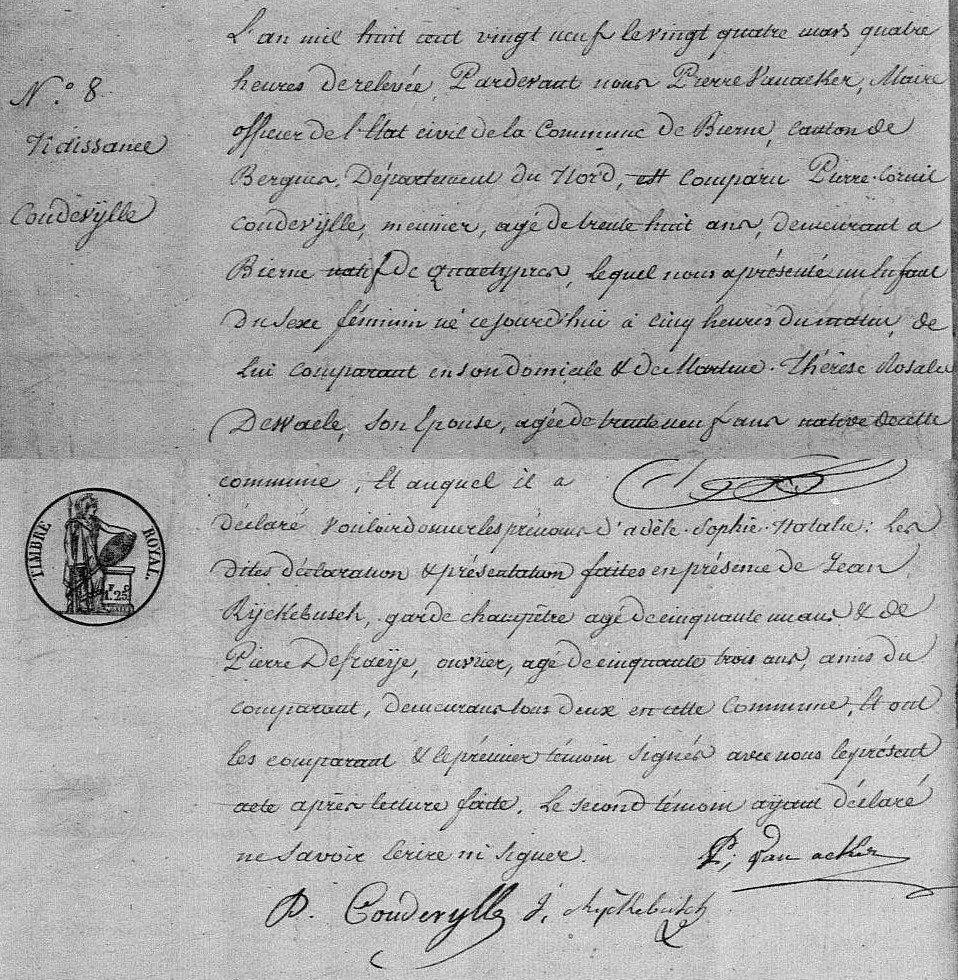 L'an mil huit cent vingt neuf le vingt quatre mars quatre
heures de relevée, Pardevant nous Pierre Vanacker, Maire
officier de l'Etat civil de la Commune de Bierne, Canton de
Bergues, Département du Nord, est comparu Pierre Corneil
Coudevylle, meunier, agé de trente huit ans, demeurant a
Bierne natif de Quaetypres, lequel nous a présenté un Enfant
du sexe féminin né ce jourd'hui à cinq heures du matin, de
Lui comparant en son domicile & de Martine Thérèse Rosalie
Dewaele, son Epouse, agée de trente neuf ans native de cette
commune, Et auquel il a
déclaré vouloir donner les prénoms d'adèle Sophie Natalie; Les
dites déclaration & présentation faites en présence de Jean
Ryckebusch, garde champêtre agé de cinquante un ans & de
Pierre Defraeye, ouvrier, agé de cinquante trois ans, amis du
comparant, demeurans tous deux en cette Commune, Et ont
les comparant & le prémier témoin signés avec nous le présent
acte après lecture faite. Le second témoin ayant déclaré
ne savoir Ecrire ni signer.
P. Van acker
P. Coudevylle J. Ryckebusch
N.° 8
Naissance
Coudevÿlle
TIMBRE ROYAL.
1. 25